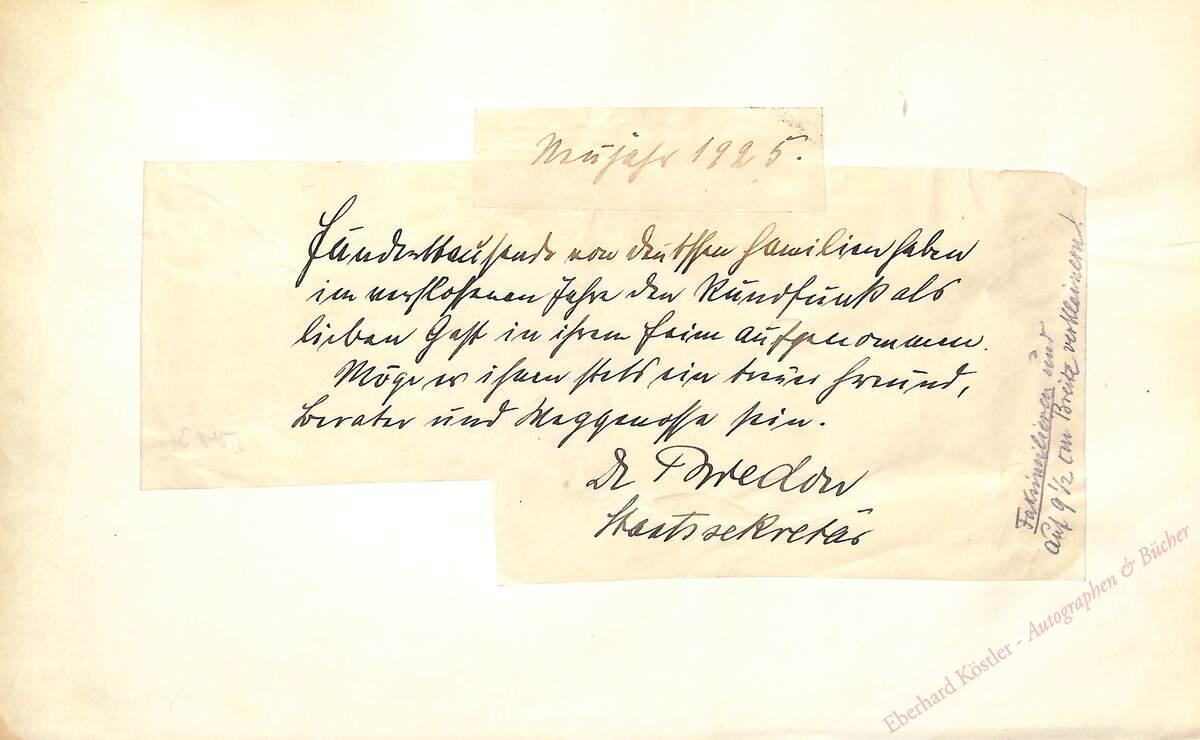 Neujahr 1925.
Hunderttausende von deutschen Familien haben
im verflossenen Jahre den Rundfunk als
lieben Gast in ihrem Heim aufgenommen.
Möge er ihnen stets ein treuer Freund,
Berater und Weggenosse sein.
Dr Bredow
Staatssekretär
Faksimilieren und
auf 9 1/2 cm Breite verkleinern!
Eberhard Köstler - Autographen & Bücher